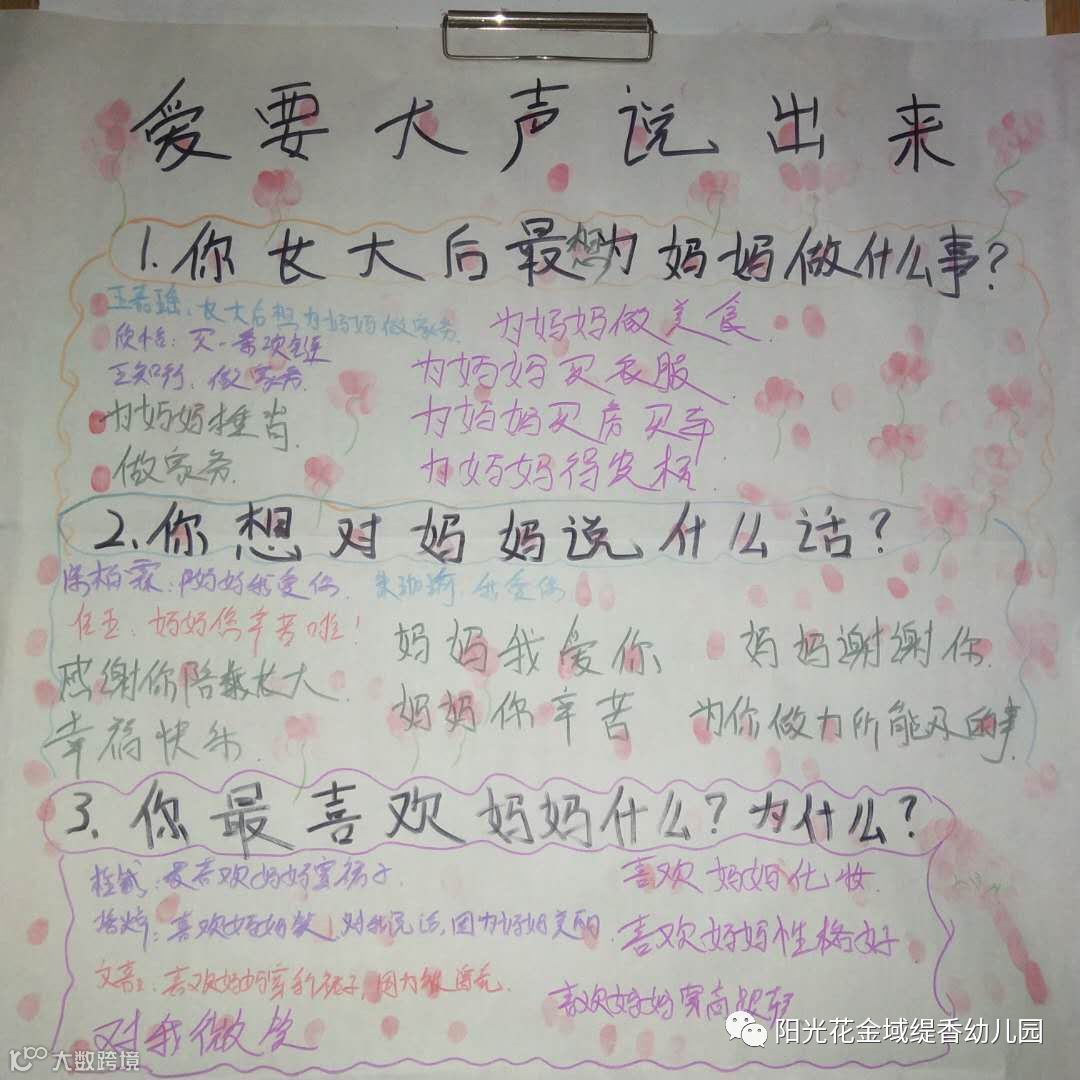 爱要大声说出来
1.你长大后最想为妈妈做什么事?
王若瑶:长大后想为妈妈做家务
为妈妈做美食.
欣怡:买一条项链
为妈妈买衣服
王知行,做家务.
为妈妈捶背.
为妈妈买房买车
做家务.
为妈妈得奖杯.
2.你想对妈妈说什么话?
陈柏霖:妈妈我爱你.
我爱你
妈妈你辛苦啦!
妈妈我爱你
妈妈谢谢你.
感谢你陪我长大.
妈妈你辛苦
为你做力所能及的事
幸福快乐.
3.你最喜欢妈妈什么?为什么?
最喜欢妈妈穿裙子.
喜欢妈妈化妆.
喜欢妈妈笑,对我说话,因为妈妈美丽.
喜欢妈妈性格好
喜欢妈妈穿的裙子,因为很漂亮.
喜欢妈妈穿高跟鞋
对我微笑
阳光花金域缇香幼儿园
大数跨境